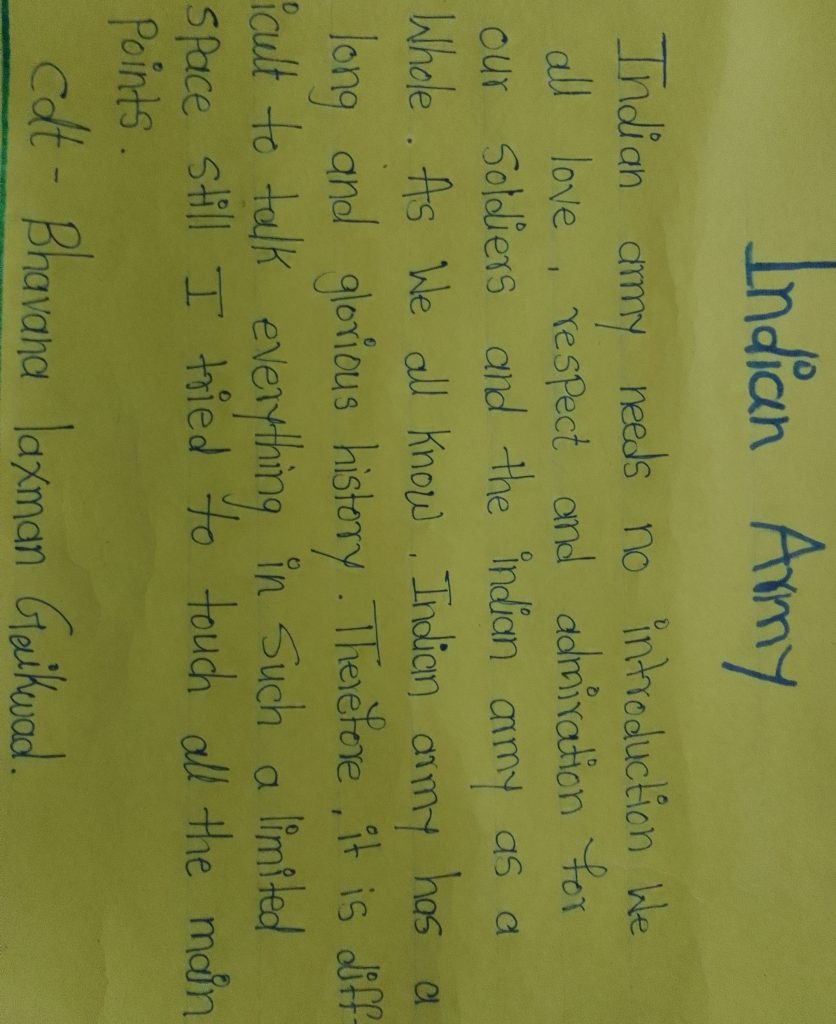 Indian Army
Indian army needs no introduction We
all love, respect and admiration for
our Soldiers and the indian army as a
Whole. As We all know, Indian army has a
long and glorious history. Therefore, it is diff-
icult to talk everything in Such a limited
space still I tried to touch all the main
Points.
Cdt - Bhavana laxman Gaikwad.